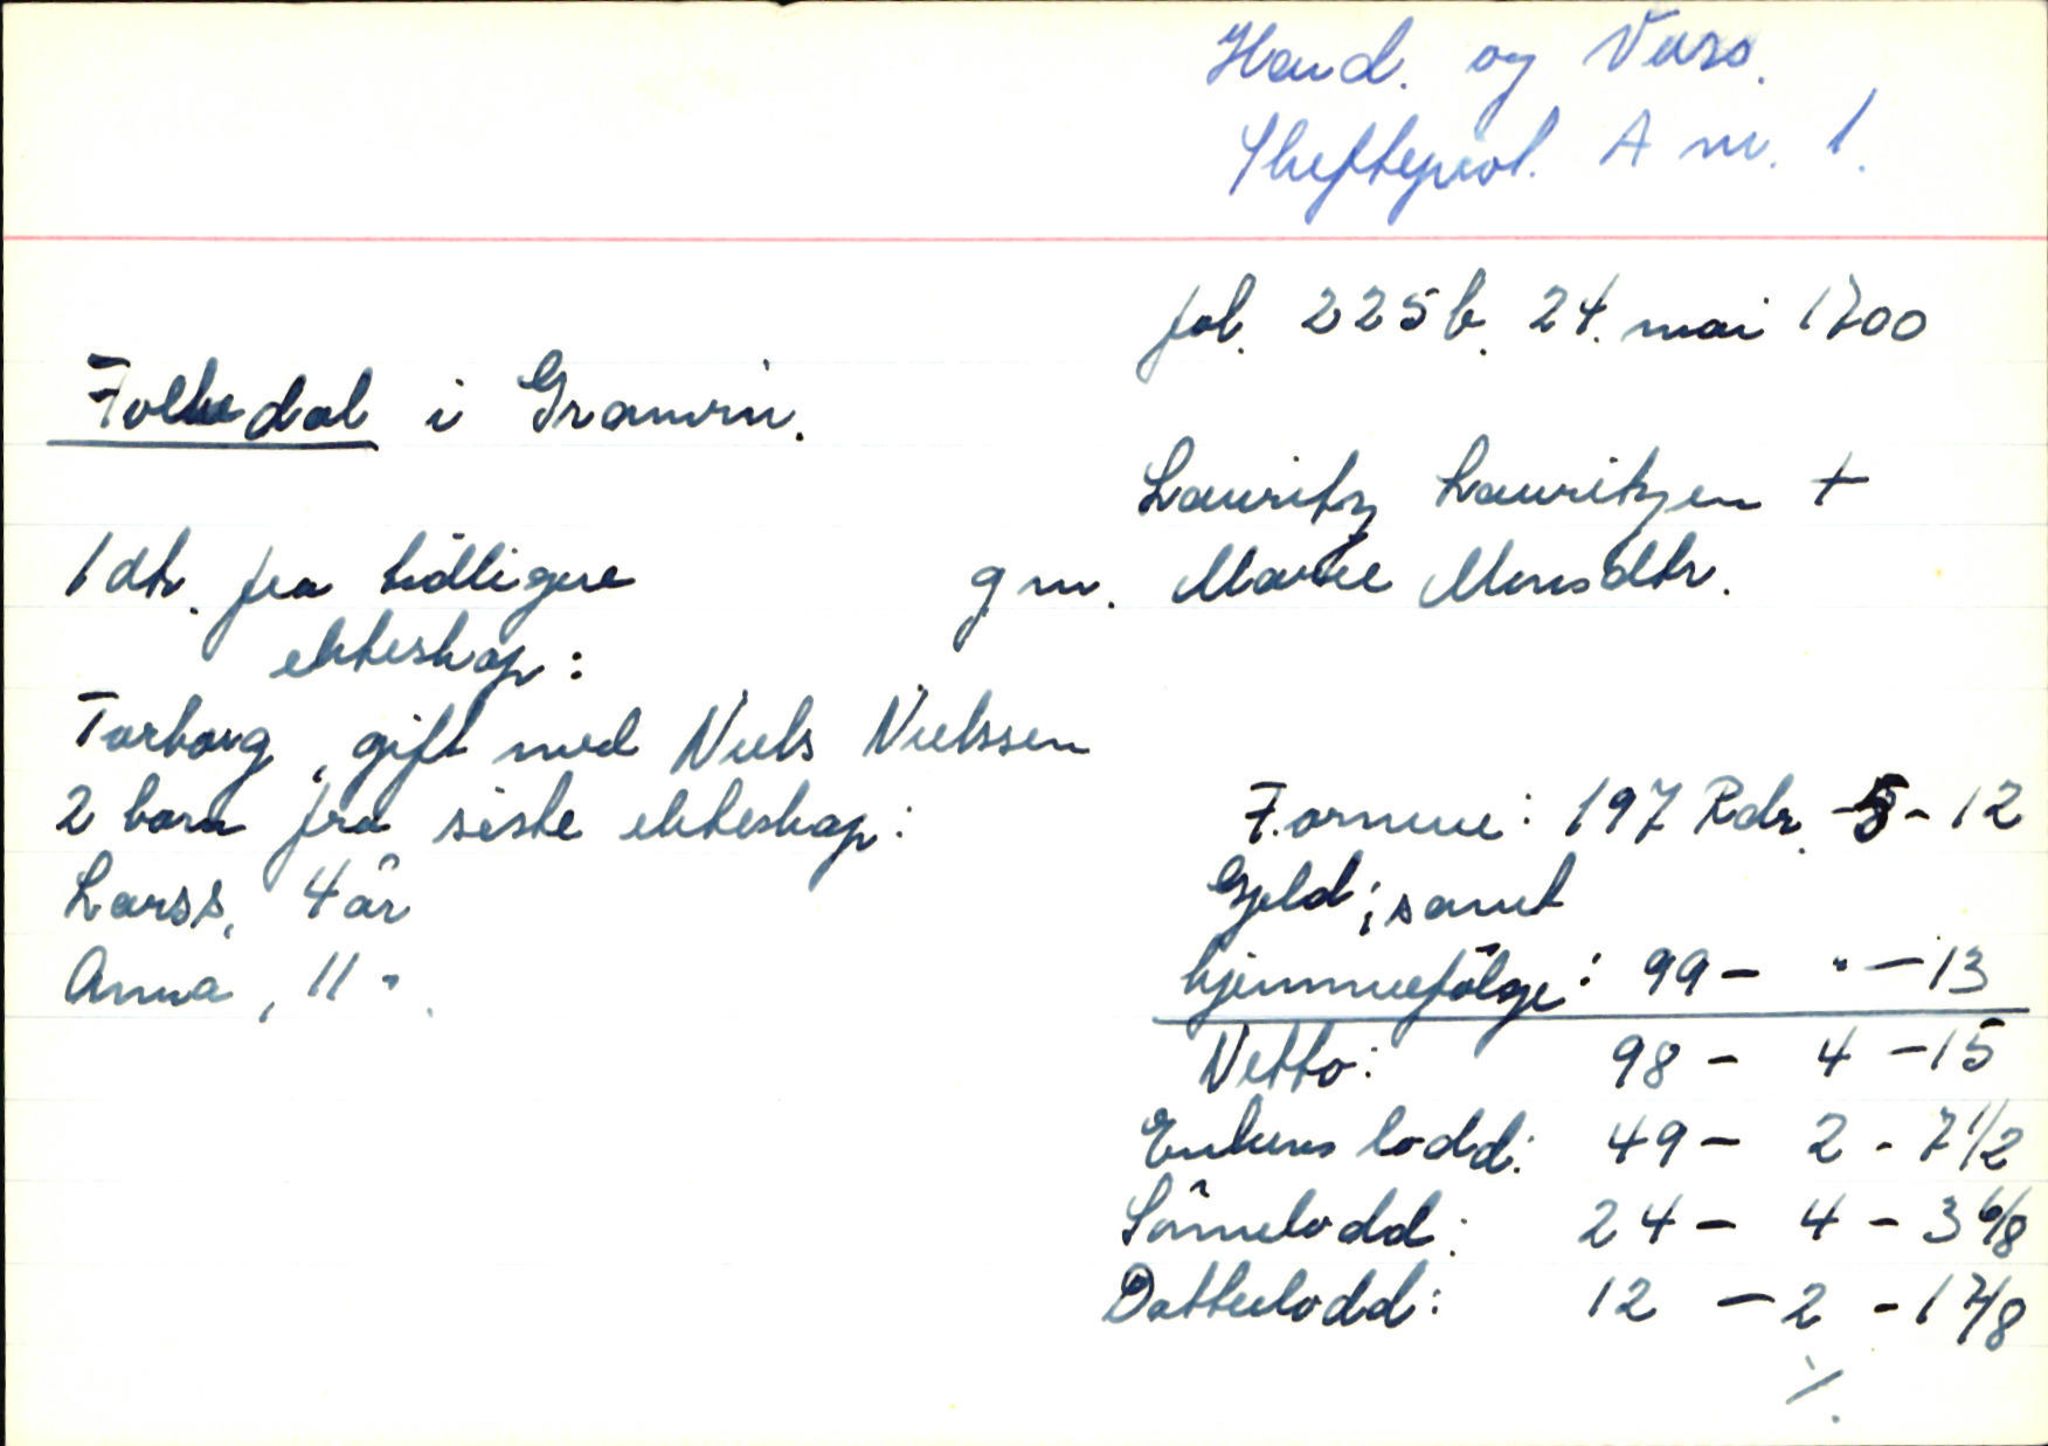 Hard. og Voss.
Skifteprot. A nr. 1.
fol. 225b. 24. mai 1700
Folkedal i Granvin.
Lauritz Lauritzen +
1 dtr. fra tidligere
g m. Marte Monsdtr.
ekteskap:
Torborg, gift med Niels Nielssen
2 barn fra siste ekteskap:
Formue: 197 Rdr. - 5 - 12
Larss, 4 år
Gjeld; samt
Anna, 11 "
hjemmefølge: 99 - " - 13
Netto: 98 - 4 - 15
Enkens lodd: 49 - 2 - 7 1/2
Sönnelodd: 24 - 4 - 3 6/8
Datterlodd: 12 - 2 - 1 7/8
./.